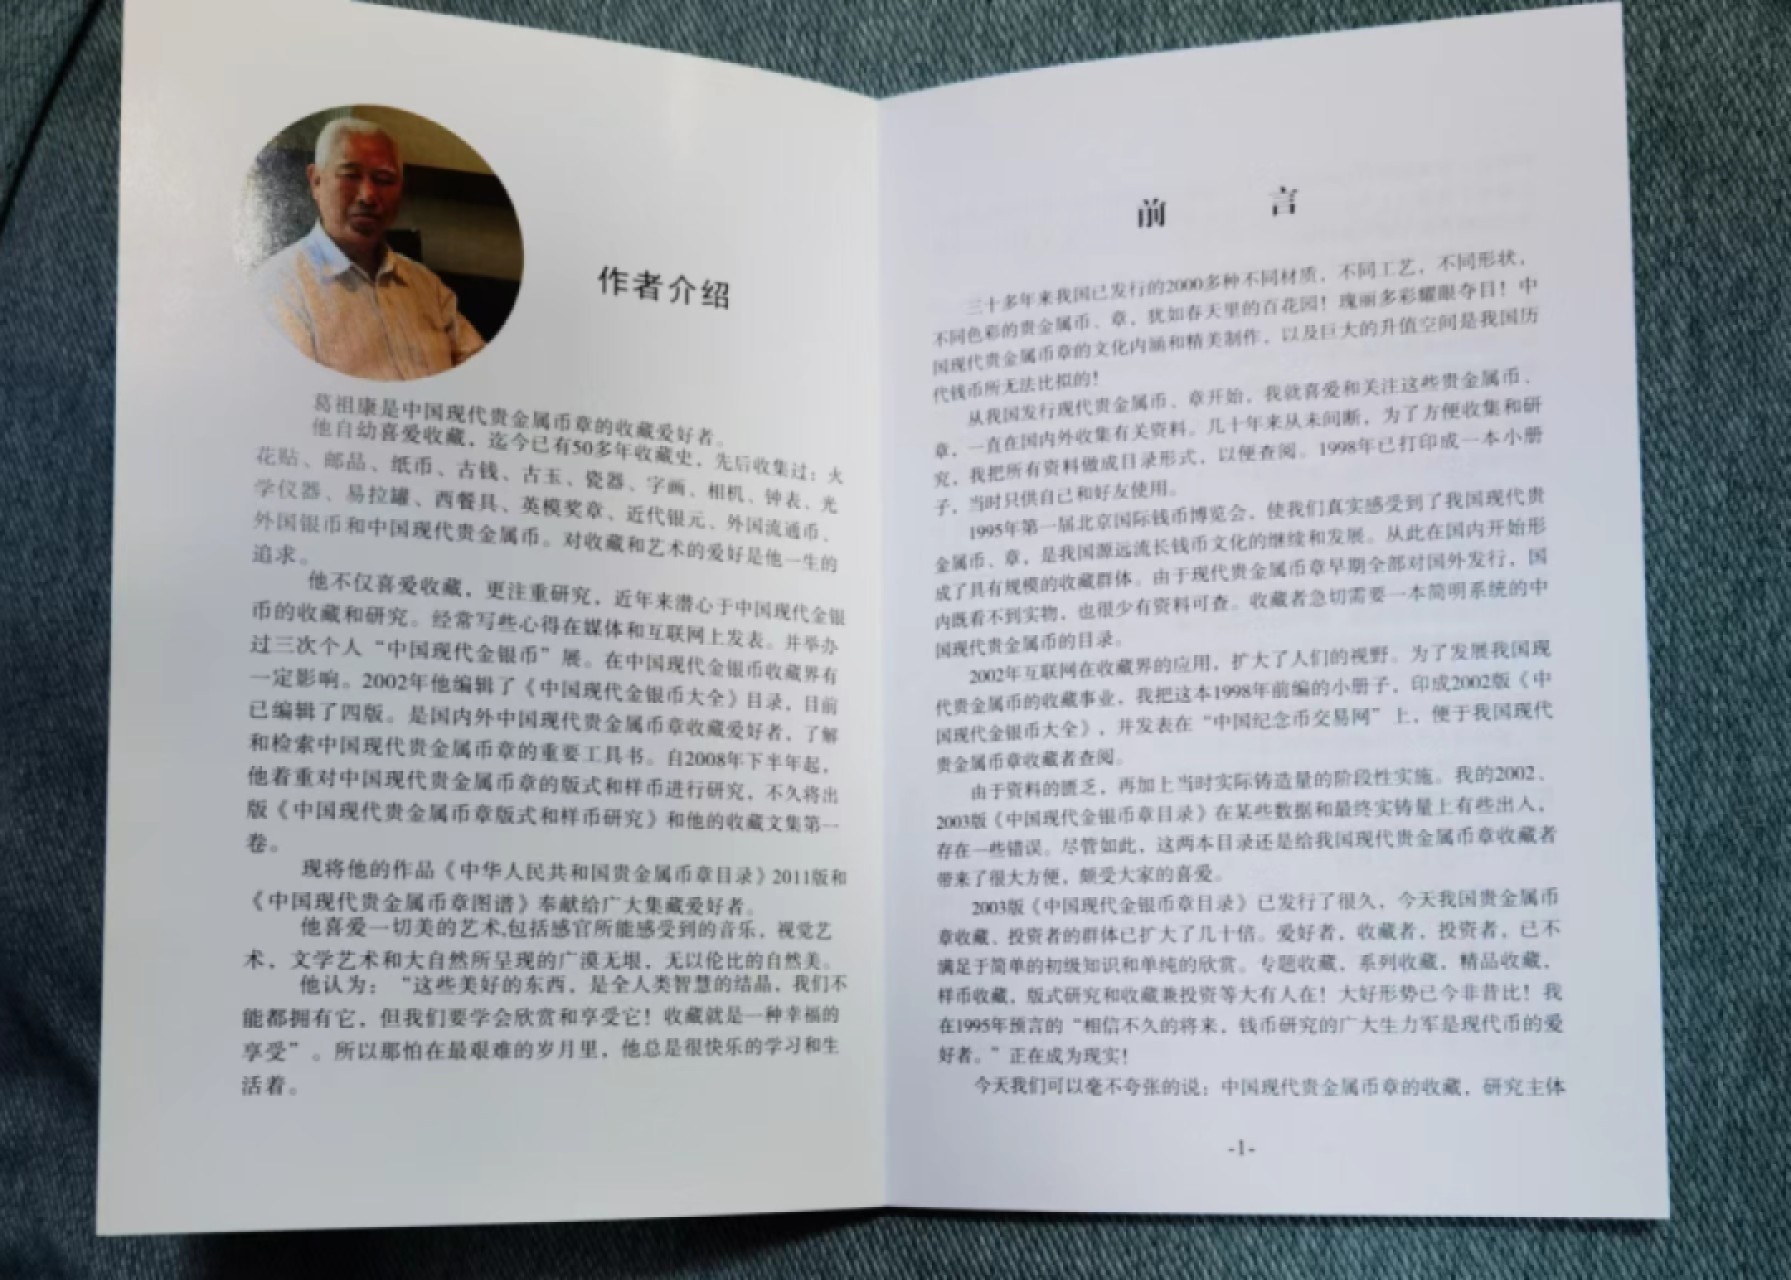 作者介绍
葛祖康是中国现代贵金属币章的收藏爱好者。
他自幼喜爱收藏，迄今已有50多年收藏史，先后收集过：火
花贴、邮品、纸币、古钱、古玉、瓷器、字画、相机、钟表、光
学仪器、易拉罐、西餐具、英模奖章、近代银元、外国流通币、
外国银币和中国现代贵金属币。对收藏和艺术的爱好是他一生的
追求。
他不仅喜爱收藏，更注重研究，近年来潜心于中国现代金银
币的收藏和研究。经常写些心得在媒体和互联网上发表。并举办
过三次个人“中国现代金银币”展。在中国现代金银币收藏界有
一定影响。2002年他编辑了《中国现代金银币大全》目录，目前
已编辑了四版。是国内外中国现代贵金属币章收藏爱好者，了解
和检索中国现代贵金属币章的重要工具书。自2008年下半年起，
他着重对中国现代贵金属币章的版式和样币进行研究，不久将出
版《中国现代贵金属币章版式和样币研究》和他的收藏文集第一
卷。
现将他的作品《中华人民共和国贵金属币章目录》2011版和
《中国现代贵金属币章图谱》奉献给广大集藏爱好者。
他喜爱一切美的艺术,包括感官所能感受到的音乐，视觉艺
术，文学艺术和大自然所呈现的广漠无垠，无以伦比的自然美。
他认为：“这些美好的东西，是全人类智慧的结晶，我们不
能都拥有它，但我们要学会欣赏和享受它！收藏就是一种幸福的
享受”。所以那怕在最艰难的岁月里，他总是很快乐的学习和生
活着。
前 言
三十多年来我国已发行的2000多种不同材质，不同工艺，不同形状，
不同色彩的贵金属币、章，犹如春天里的百花园！瑰丽多彩耀眼夺目！中
国现代贵金属币章的文化内涵和精美制作，以及巨大的升值空间是我国历
代钱币所无法比拟的！
从我国发行现代贵金属币、章开始，我就喜爱和关注这些贵金属币、
章，一直在国内外收集有关资料。几十年来从未间断，为了方便收集和研
究，我把所有资料做成目录形式，以便查阅。1998年已打印成一本小册
子，当时只供自己和好友使用。
1995年第一届北京国际钱币博览会，使我们真实感受到了我国现代贵
金属币、章，是我国源远流长钱币文化的继续和发展。从此在国内开始形
成了具有规模的收藏群体。由于现代贵金属币章早期全部对国外发行，国
内既看不到实物，也很少有资料可查。收藏者急切需要一本简明系统的中
国现代贵金属币的目录。
2002年互联网在收藏界的应用，扩大了人们的视野。为了发展我国现
代贵金属币的收藏事业，我把这本1998年前编的小册子，印成2002版《中
国现代金银币大全》，并发表在“中国纪念币交易网”上，便于我国现代
贵金属币章收藏者查阅。
由于资料的匮乏，再加上当时实际铸造量的阶段性实施。我的2002、
2003版《中国现代金银币章目录》在某些数据和最终实铸量上有些出入，
存在一些错误。尽管如此，这两本目录还是给我国现代贵金属币章收藏者
带来了很大方便，颇受大家的喜爱。
2003版《中国现代金银币章目录》已发行了很久，今天我国贵金属币
章收藏、投资者的群体已扩大了几十倍。爱好者，收藏者，投资者，已不
满足于简单的初级知识和单纯的欣赏。专题收藏，系列收藏，精品收藏，
样币收藏，版式研究和收藏兼投资等大有人在！大好形势已今非昔比！我
在1995年预言的“相信不久的将来，钱币研究的广大生力军是现代币的爱
好者。”正在成为现实！
今天我们可以毫不夸张的说：中国现代贵金属币章的收藏，研究主体
-1-